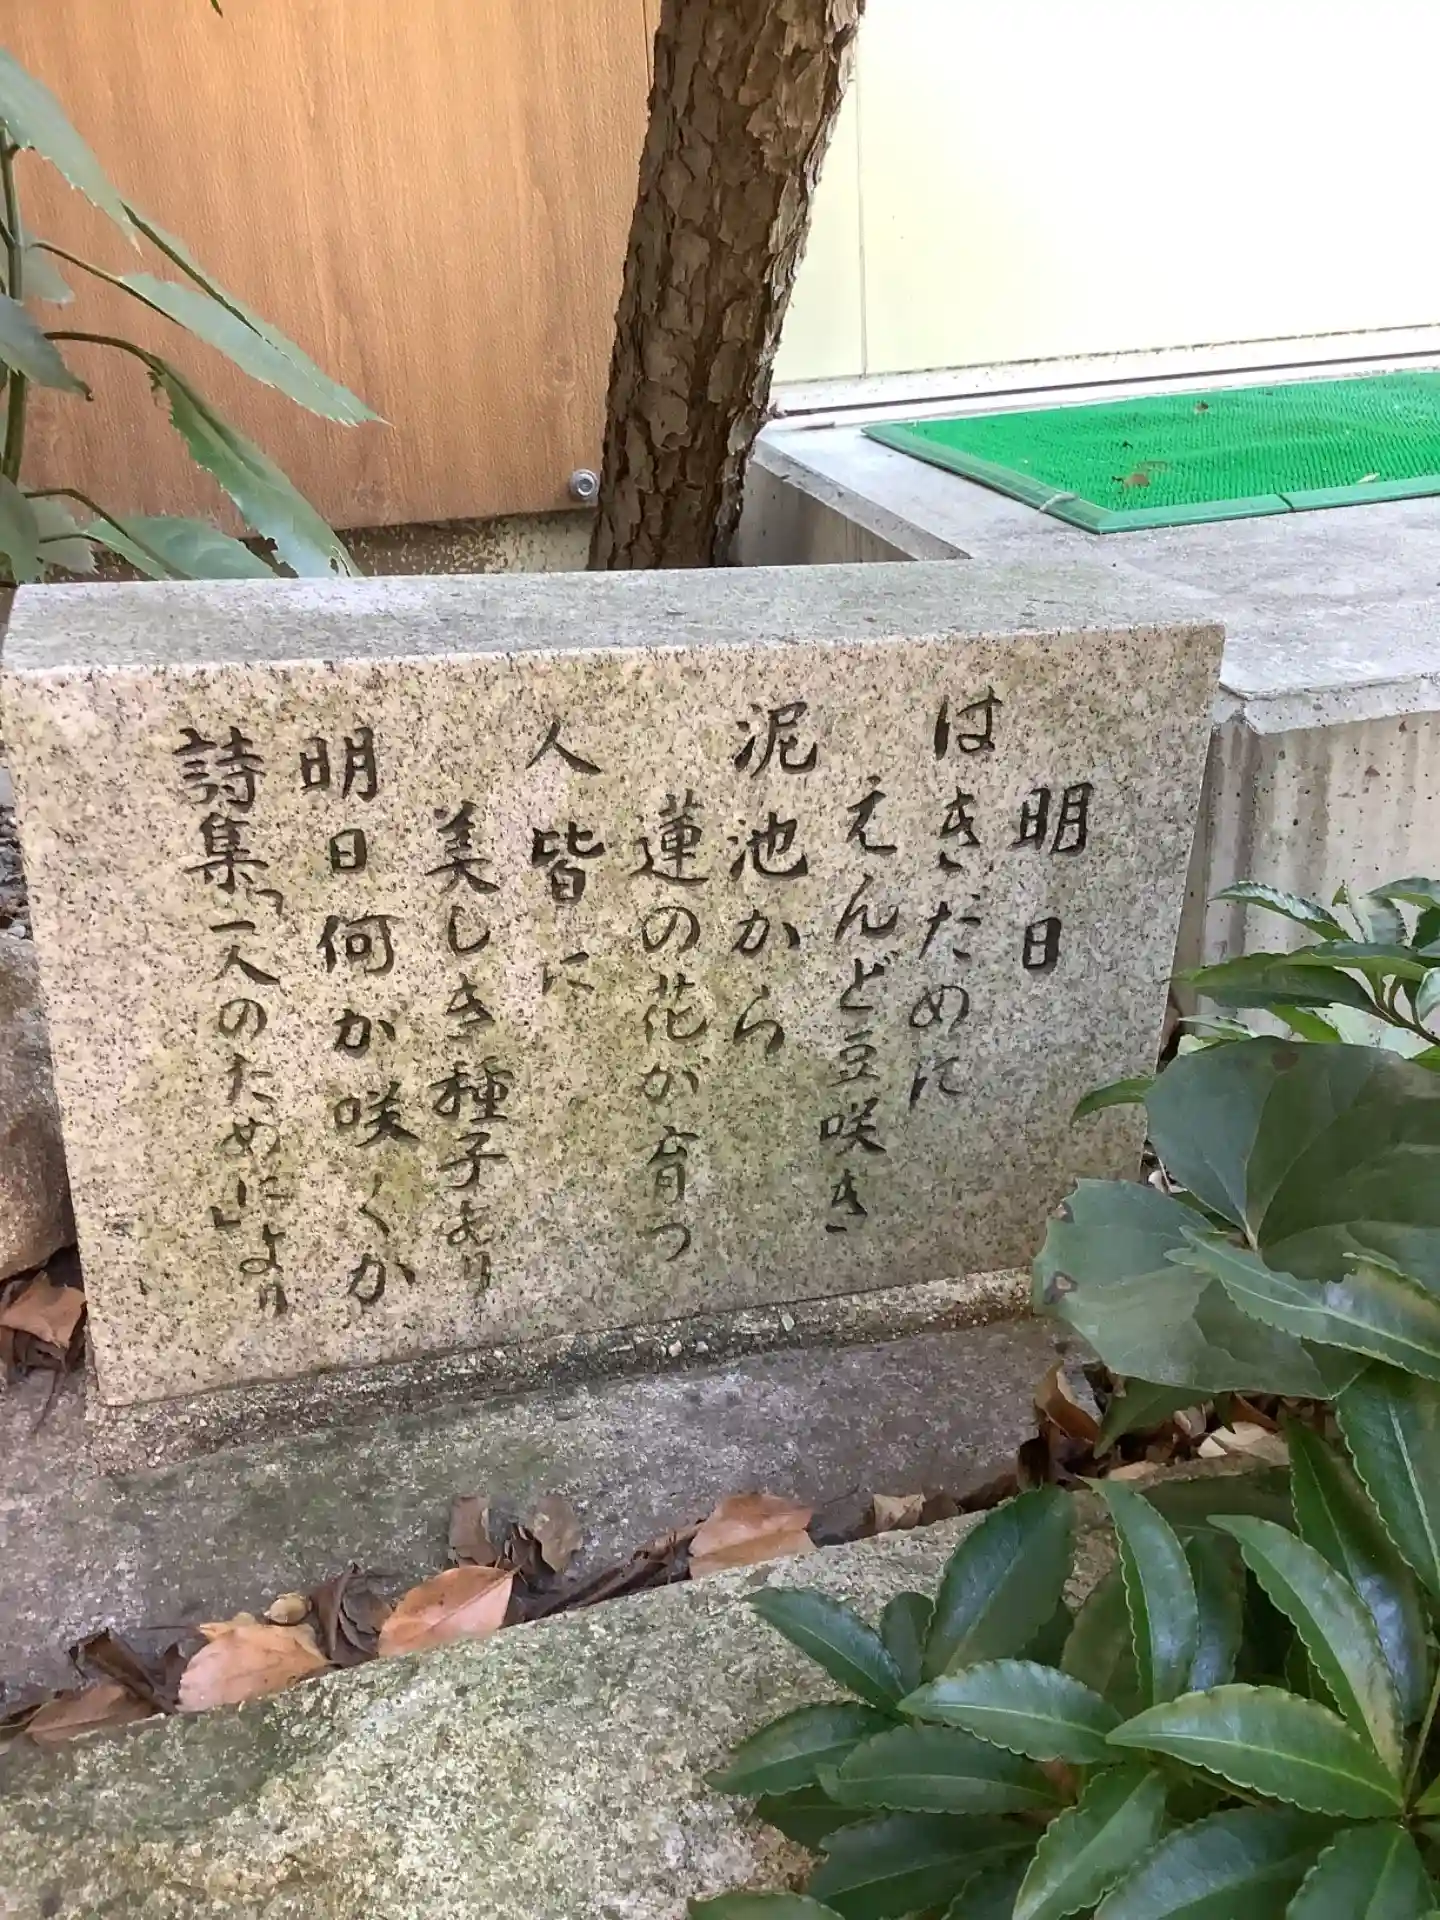 明日
はきだめに
えんど豆咲き
泥池から
蓮の花が育つ
人皆に
美しき種子あり
明日何が咲くか
詩集「一人のために」より